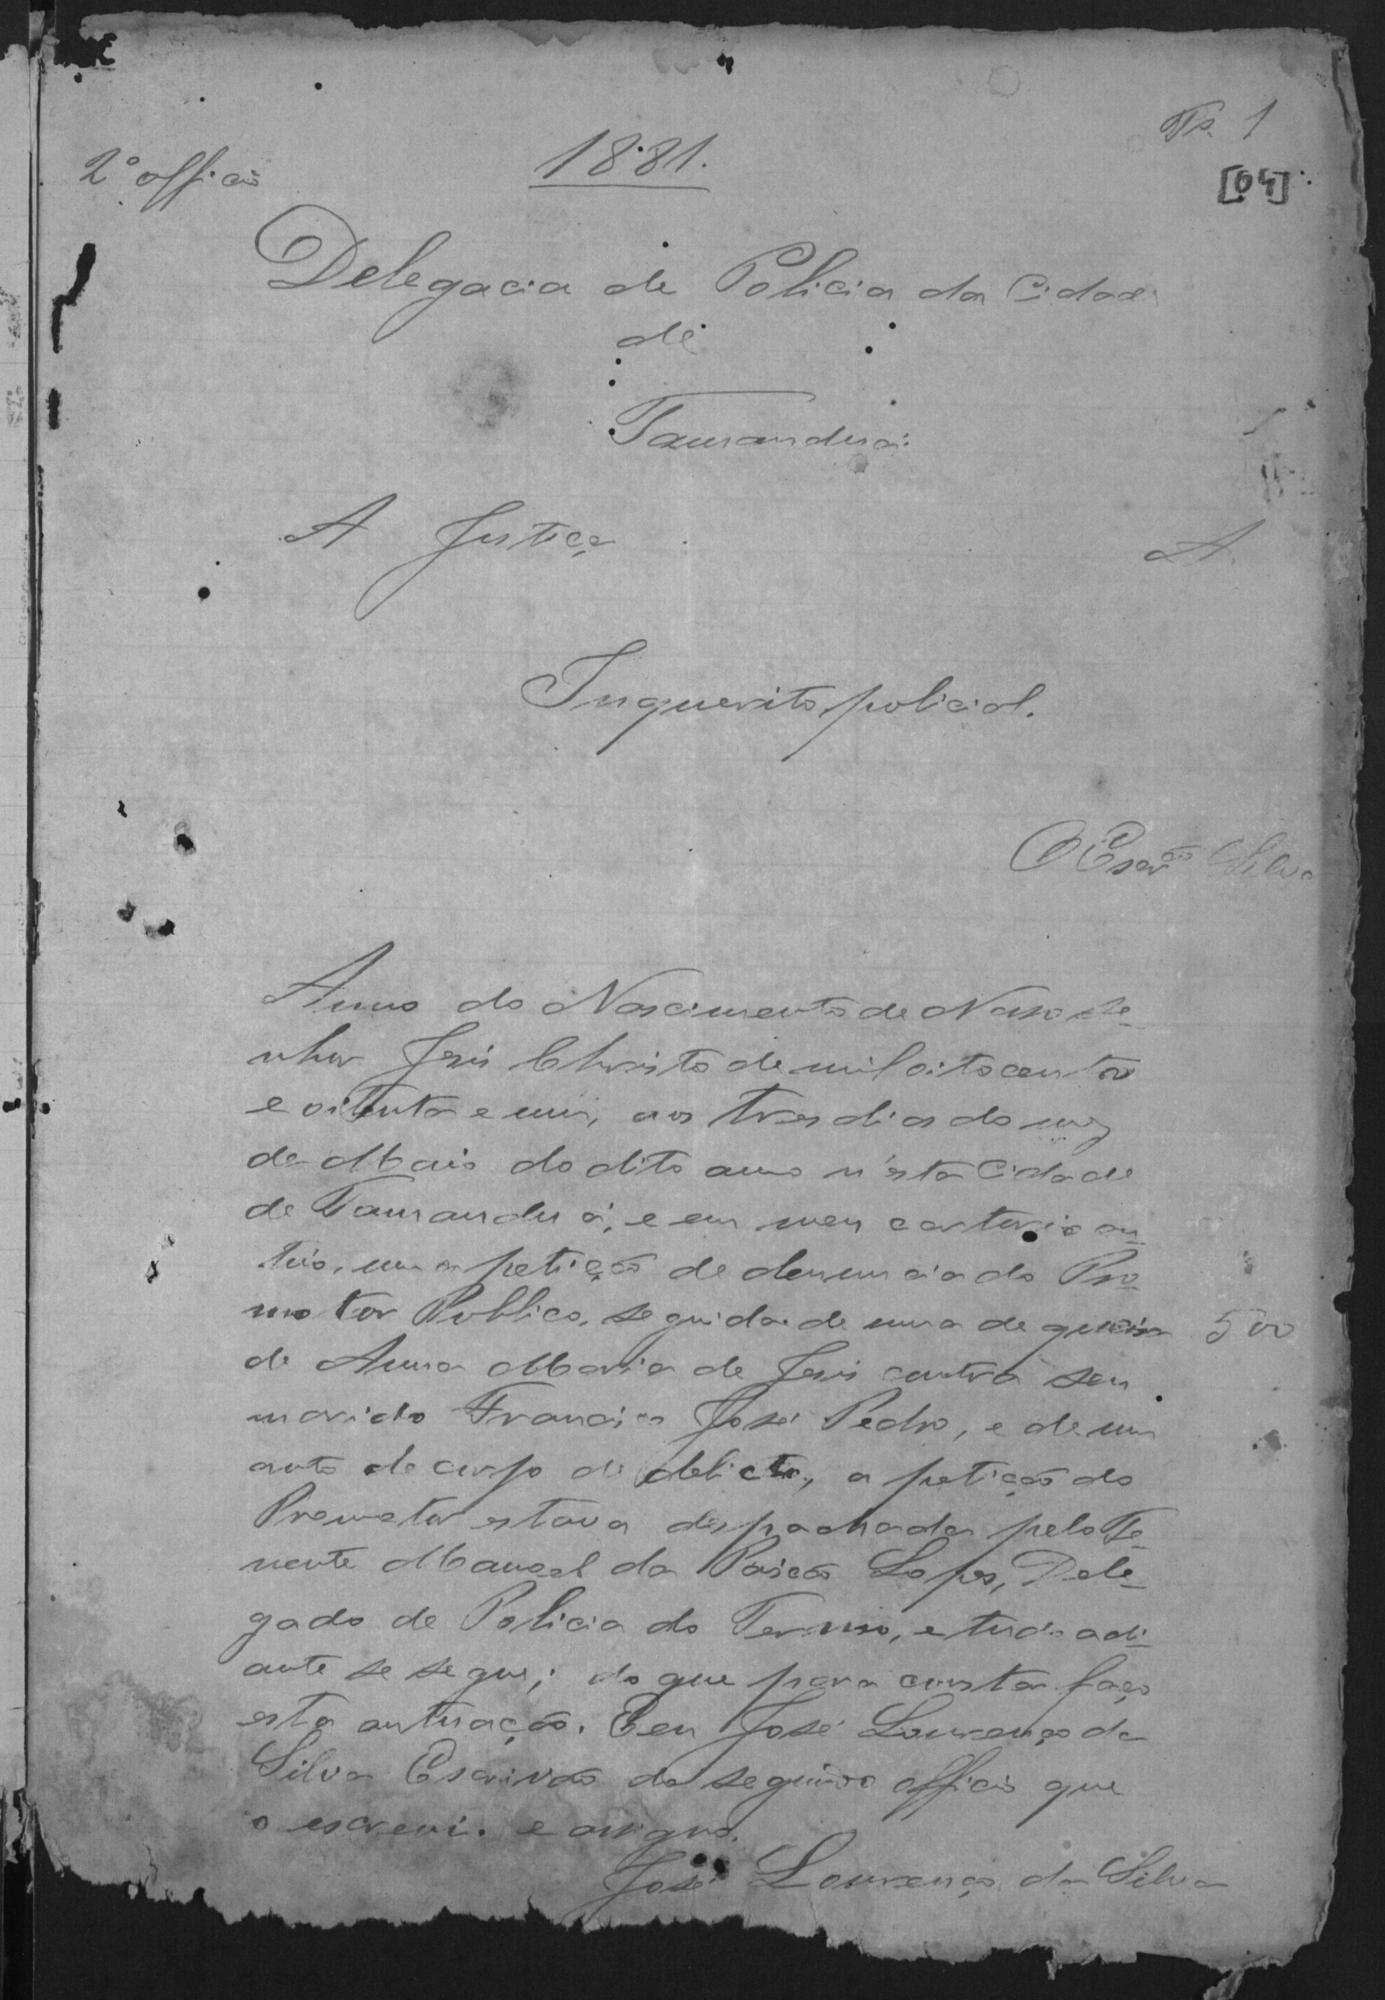 Fs. 1
2º officio
1881.
[04]
Delegacia de Policia da Cidade
de
Tamanduá.
A Justiça A.
Inquerito policial.
O Escrᵃᵒ Silva
Anno do Nascimento de Nosso Se-
nhor Jesus Christo de mil oito centos
e oitenta e um, aos tres dias do mez
de Maio do dito anno n'esta Cidade
de Tamanduá, e em meu cartorio au-
tuo, uma petição de denuncia do Pro-
motor Publico, seguida de uma de queixa 500
de Anna Maria de Jesus contra seu
marido Francisco José Pedro, e de um
auto de corpo de delicto, a petição do
Promotor estava despachada pelo Te-
nente Manoel da Paixão Lopes, Dele-
gado de Policia do Termo, e tudo adi-
ante se segue; do que para constar faço
esta autuação. E eu José Lourenço da
Silva Escrivão do segundo officio que
o escrevi. e assigno.
José Lourenço da Silva